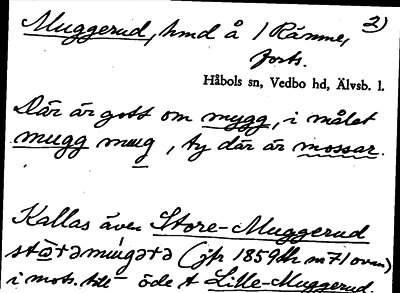 Muggerud, hmd å /Ränne, 2)
forts.
Håbols sn, Vedbo hd, Älvsb. l.
Där är gott om mygg, i målet
mugg mug, ty där är mossar.
Kallas även Store-Muggerud
(jfr 1859
i mots. till öde t Lille-Muggerud.